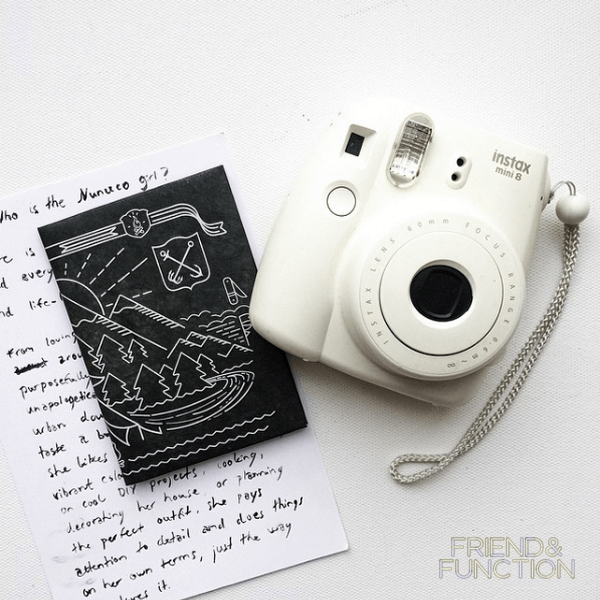 Who is the Nunuco girl?
re is
d every
nd life-
from loving
purposefull
unapologetica
urban
taste a
she likes
vibrant colo
on cool DIY projects, cooking,
decorating her house or planning
the perfect outfit, she pays
attention to detail and does things
on her own terms, just the way
it.
instax
mini 8
INSTAX LENS 60mm FOCUS RANGE 0.6m ~ ∞
FRIEND &
FUNCTION